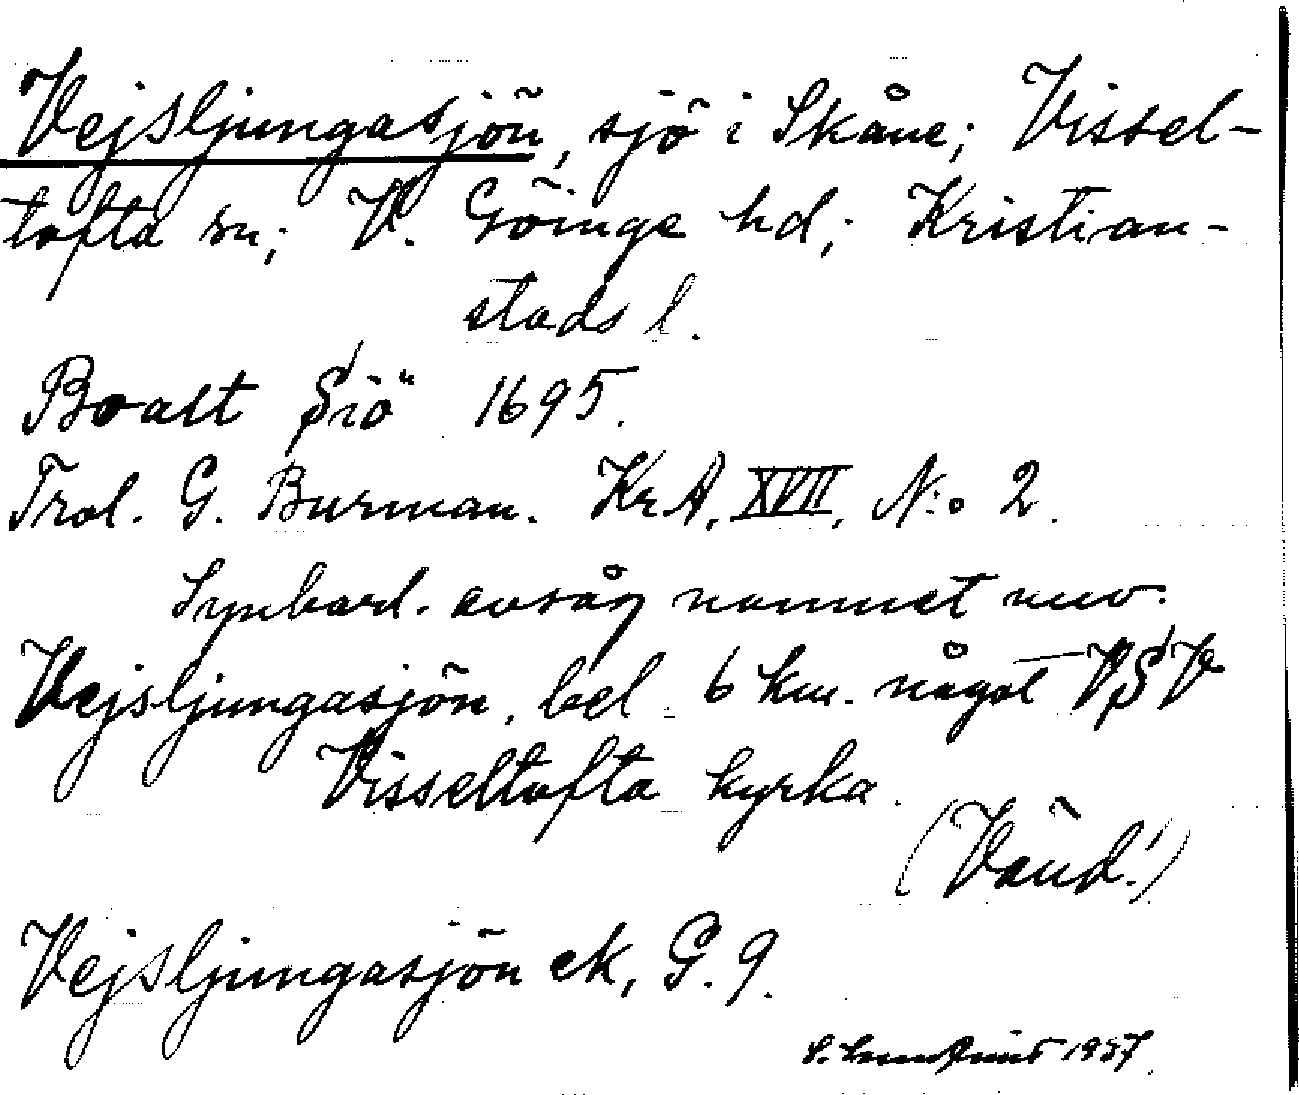 Vejsljungasjön, sjö i Skåne; Vissel-
tofta sn; V. Göinge hd; Kristian-
stads l.
Boalt Siö 1695.
Trol. G. Burman. KrA, XVII, N:o 2.
Synbarl. avsåg namnet nuv.
Vejsljungasjön, bel. 6 km. något VSV
Visseltofta kyrka.
(Vänd!)
Vejsljungasjön ek, G. 9.
1937